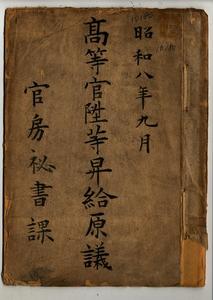 昭和八年九月
高等官陞等昇給原議
官房祕書課